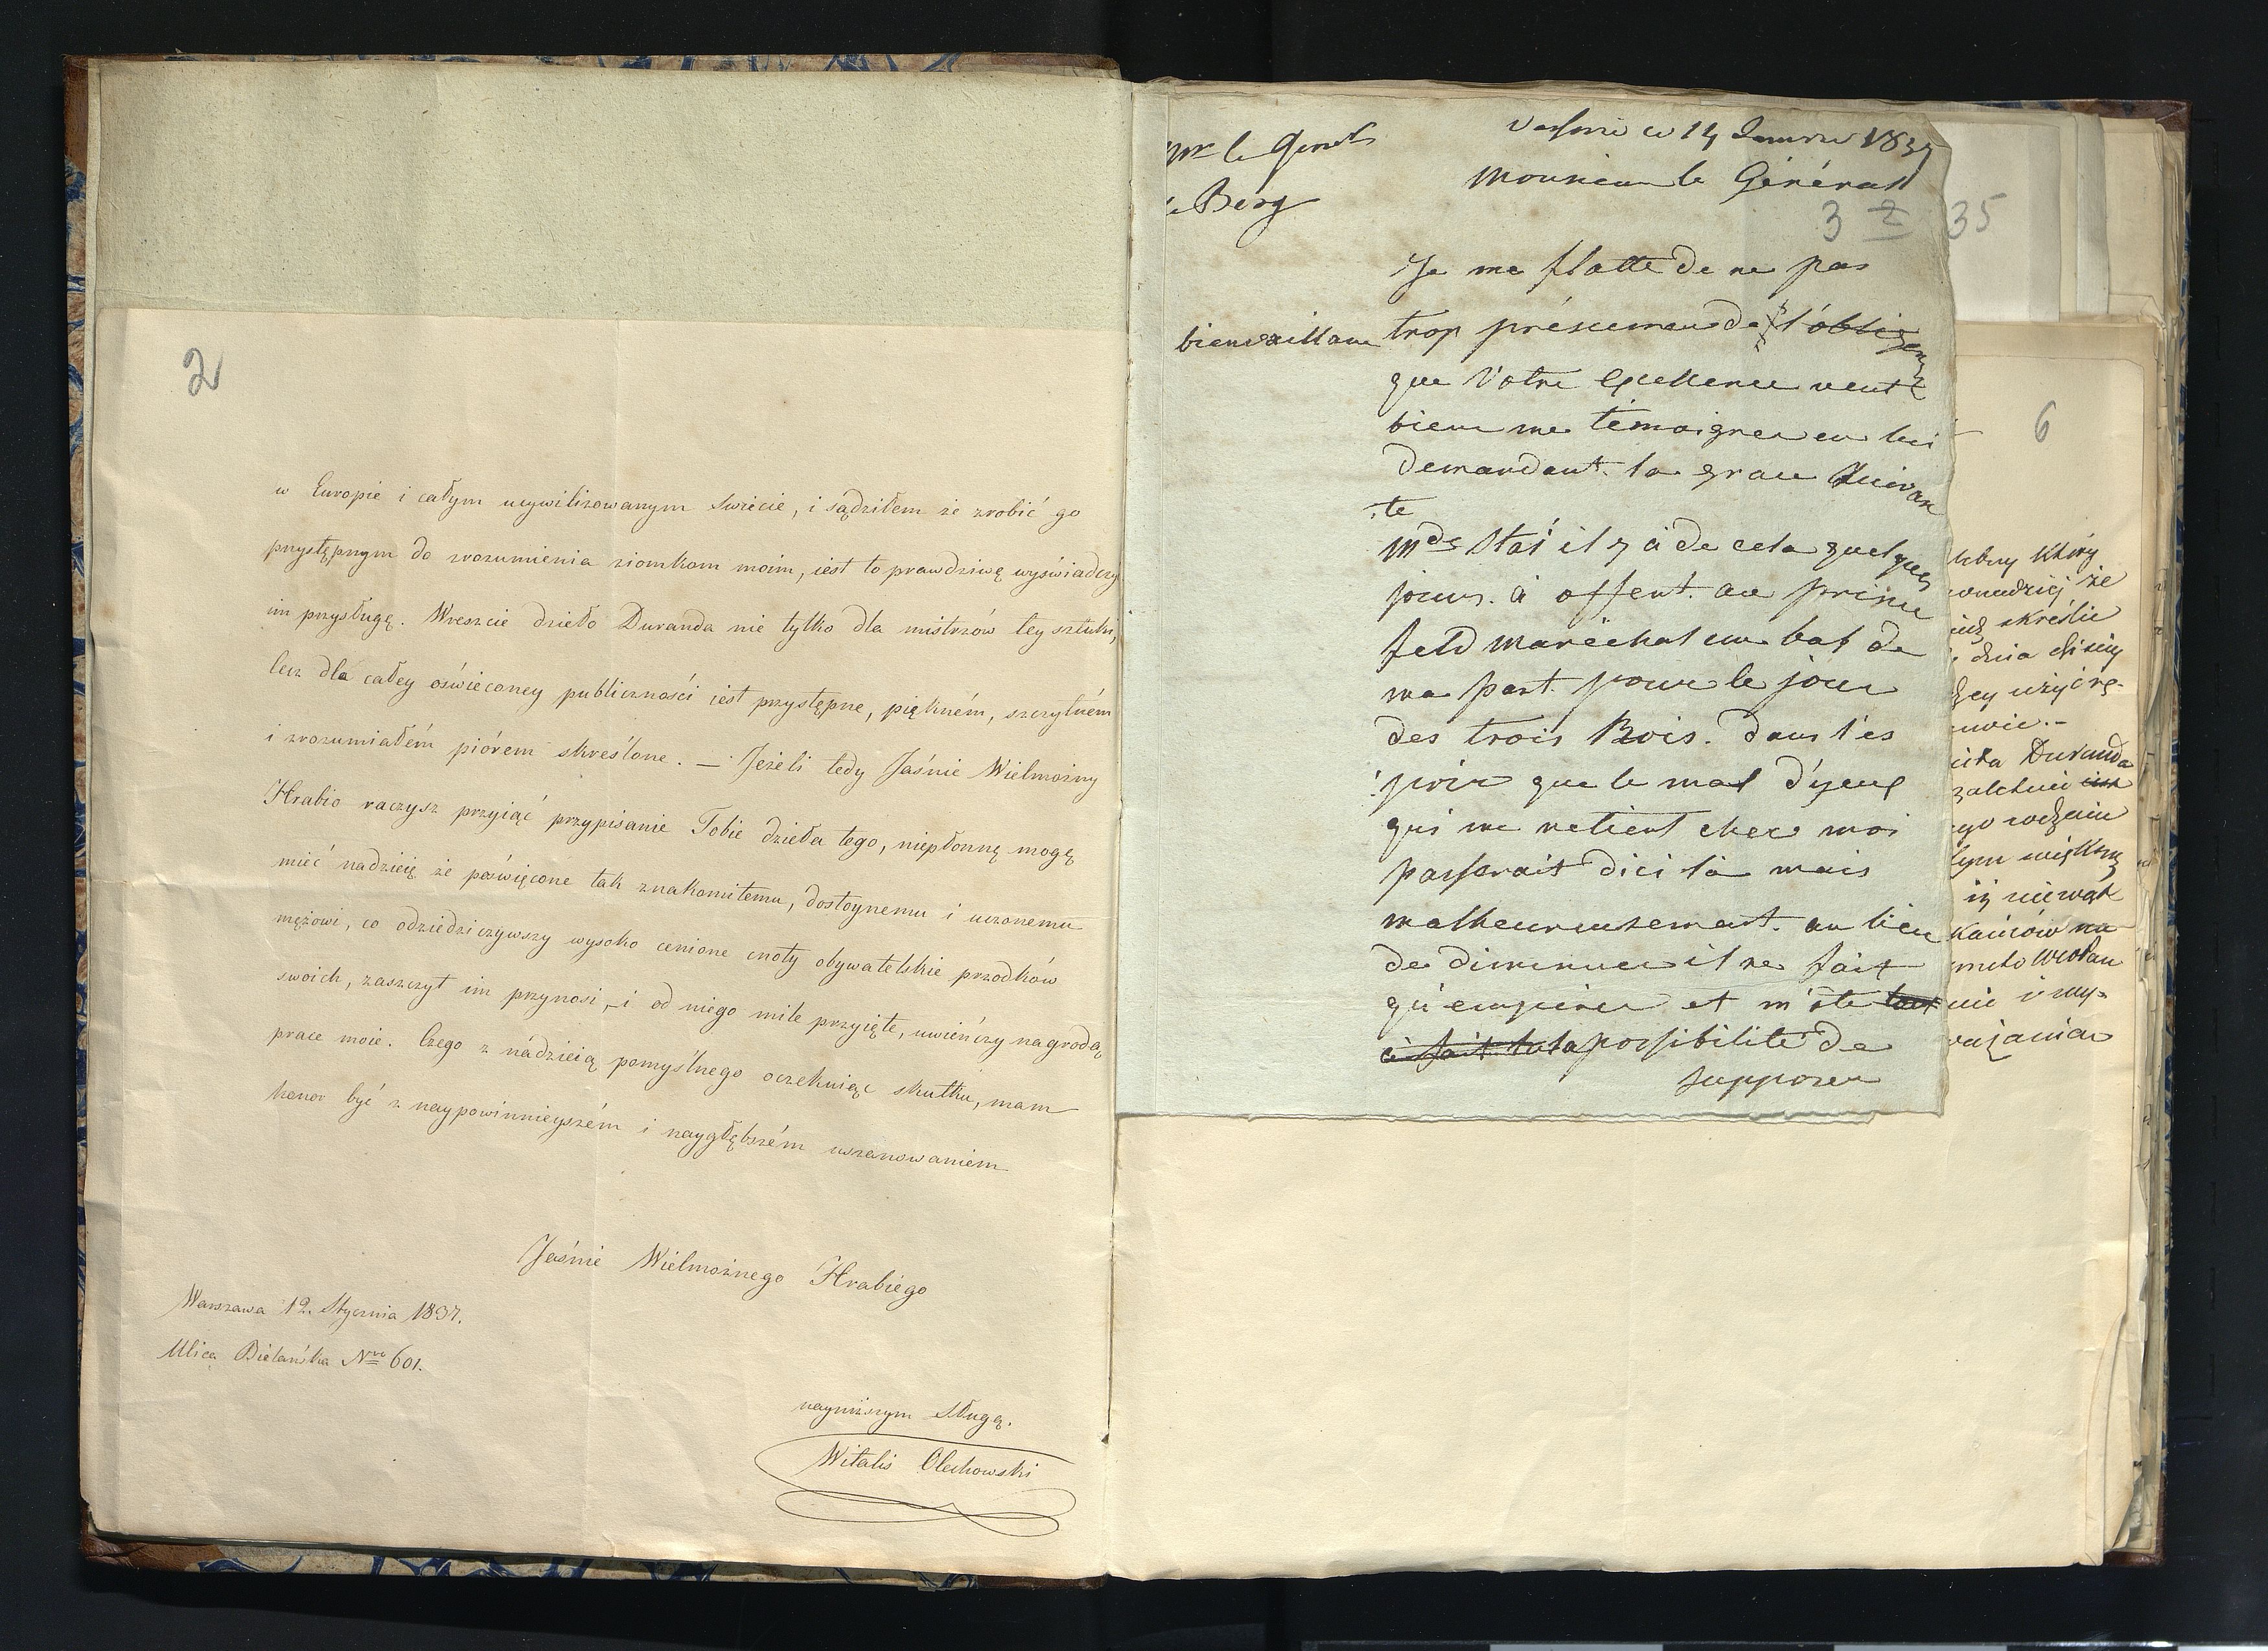 2
w Europie i całym ucywilizowanym świecie, i sądziłem że zrobić go
przystępnym do zrozumienia ziomkom moim, iest to prawdziwę wyświadczy
im przysługę. Wreszcie dzieło Duranda nie tylko dla mistrzów tey sztuki,
lecz dla całey oświeconey publiczności iest przystępne, piękném, szczytném
i zrozumiałém piórem skreślone. — Jeżeli tedy Jaśnie Wielmożny
Hrabio raczysz przyiąć przypisanie Tobie dzieła tego, niepłonną mogę
mieć nadzieię że poświęcone tak znakomitemu, dostoynemu i uczonemu
mężowi, co odziedziczywszy wysoko cenione cnoty obywatelskie przodków
swoich, zaszczyt im przynosi, i od niego mile przyięte, uwieńczy nagrodą
prace moie. Czego z nadzieią pomyślnego oczekuiąc skutku, mam
honor być z naypowinnieyszém i naygłębszém uszanowaniem
Jaśnie Wielmożnego Hrabiego
Warszawa 12. Stycznia 1837.
Ulica Bielańska Nro 601.
nayniższym sługą.
Witalis Olechowski
Mr le Genrl
de Berg
Varsovie ce 14 Janvier 1837
Monsieur le Général
3 2 35
Je me flatte de ne pas
bienveillance trop présumer de l'obligence
que Votre Excellence veut
bien me témoigner en lui
demandant la grace suivan
te
Mde Stas il y à de cela quelques
jours à offert au prince
feld maréchal un bal de
ma part pour le jour
des trois Rois. dans l'es
poir que le mal d'yeux
qui me retient chez moi
passerait dici là mais
malheureusement au lieu
de diminuer il ne fait
qu'empirer et m'ôte tout
à fait la possibilité de
supposer
6
który
że
skreślić
użyć
Duranda